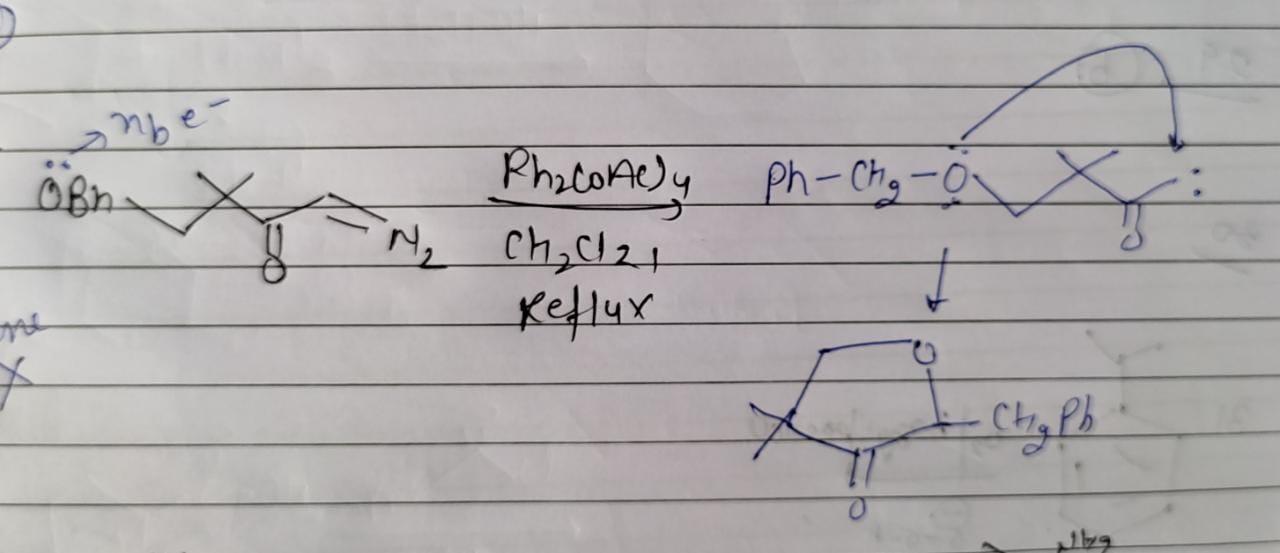 nb e⁻
ÖBn
N₂
O
Rh₂(oAc)₄
CH₂Cl₂,
Reflux
Ph-CH₂-O
O
:
O
CH₂Ph
O
X